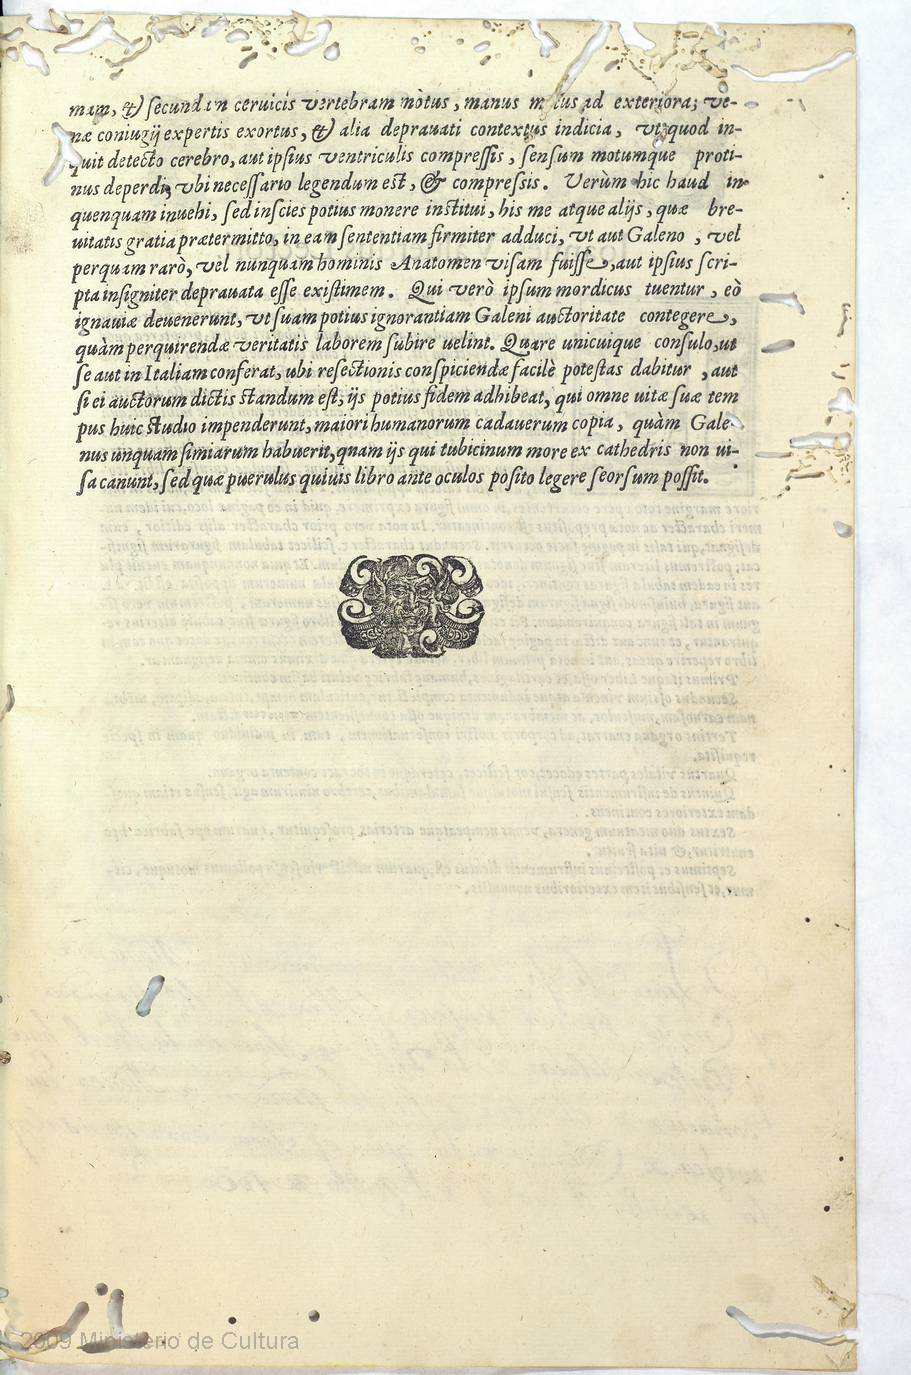 mam, & secundam ceruicis vertebram mòtus, manus motus ad exteriora; ve-
næ coniugij expertis exortus, & alia deprauati contextus indicia, vt quod in-
quit detecto cerebro, aut ipsius ventriculis compressis, sensum motumque proti-
nus deperdi, vbi necessario legendum est, & compressis. Verùm hic haud in
quenquam inuehi, sed inscies potius monere institui, his me atque alijs, quæ bre-
uitatis gratia prætermitto, in eam sententiam firmiter adduci, vt aut Galeno, vel
perquam rarò, vel nunquam hominis Anatomen visam fuisse, aut ipsius scri-
pta insigniter deprauata esse existimem. Qui verò ipsum mordicus tuentur, eò
ignauiæ deuenerunt, vt suam potius ignorantiam Galeni auctoritate contegere,
quàm perquirendæ veritatis laborem subire uelint. Quare unicuique consulo, ut
se aut in Italiam conferat, ubi resectionis conspiciendæ facilè potestas dabitur, aut
si ei auctorum dictis standum est, ijs potius fidem adhibeat, qui omne uitæ suæ tem
pus huic studio impenderunt, maiori humanorum cadauerum copia, quàm Gale-
nus unquam simiarum habuerit, quam ijs qui tubicinum more ex cathedris non ui-
sa canunt, sed quæ puerulus quiuis libro ante oculos posito legere seorsum possit.
2009 Ministerio de Cultura